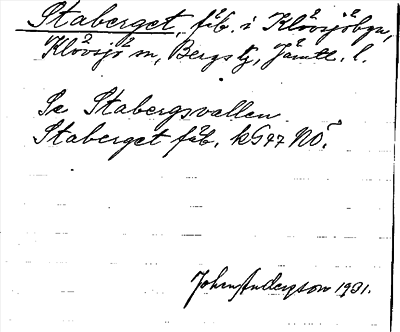 Staberget, fäb. i Klövsjöbyn,
Klövsjö sn, Bergs tg, Jämtl. l.
Se Stabergsvallen.
Staberget fäb. kG77 NO.
John Anderson 1931.